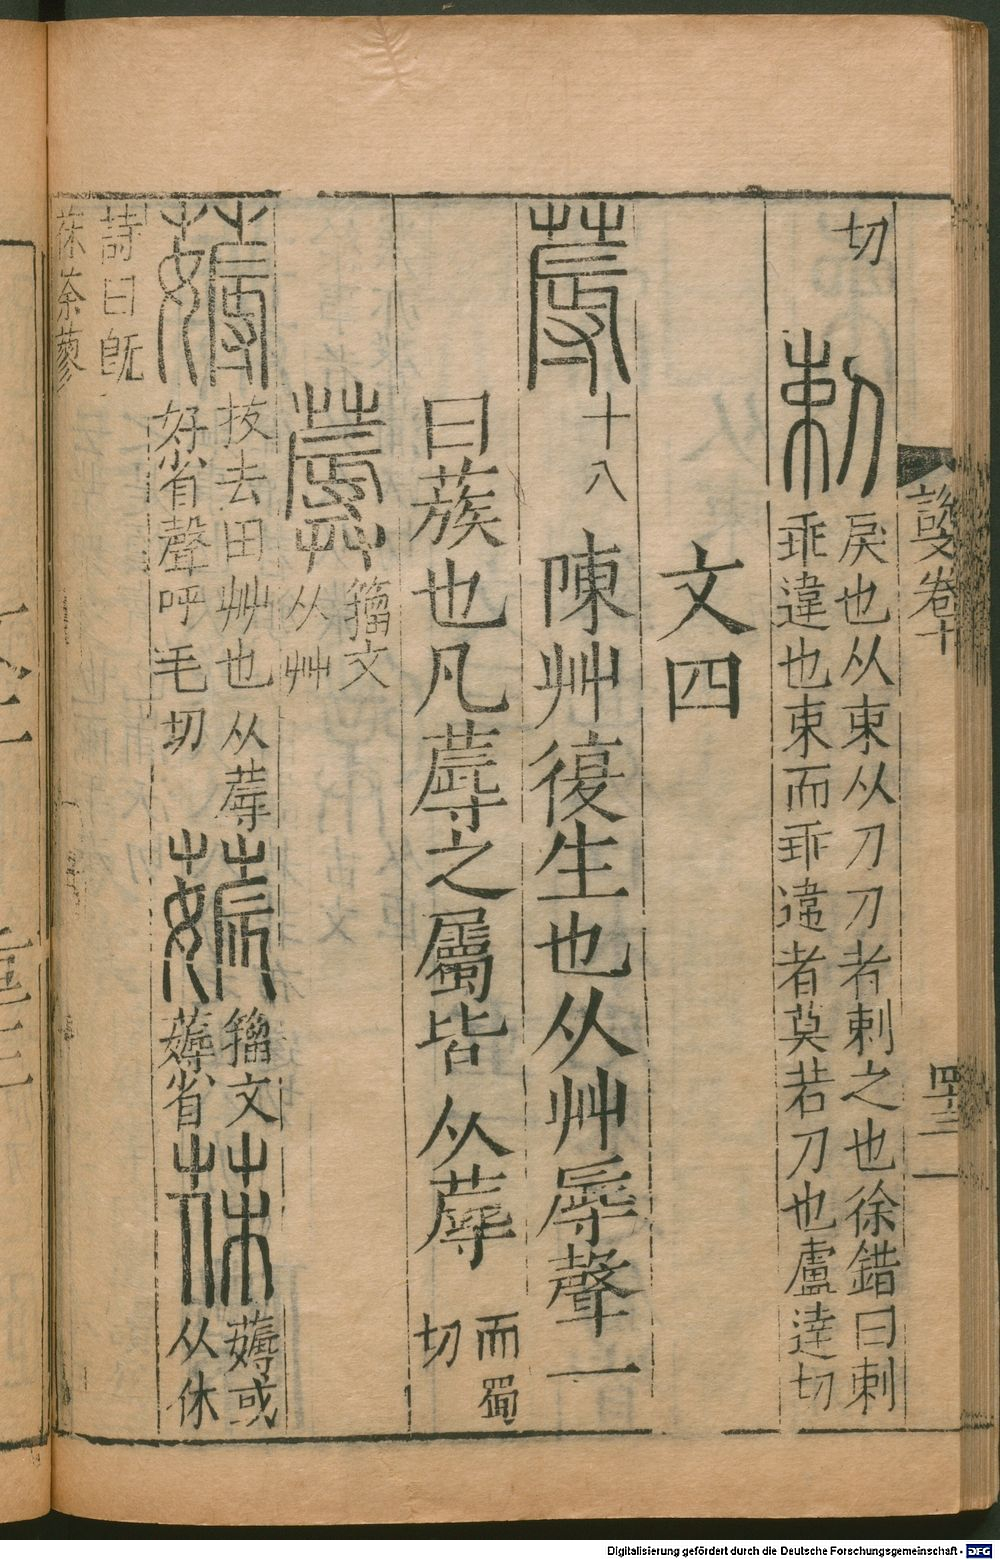 説文卷十
四十三
切
剌
戾也从束从刀刀者剌之也徐鍇曰剌
乖違也束而乖違者莫若刀也盧達切
文四
蓐
十八
陳艸復生也从艸辱聲一
曰蔟也凡蓐之屬皆从蓐
而蜀
切
籀文
从茻
薅
拔去田艸也从蓐
好省聲呼毛切
籀文
薅省
茠
薅或
从休
詩曰旣
茠荼蓼
Digitalisierung gefördert durch die Deutsche Forschungsgemeinschaft - DFG